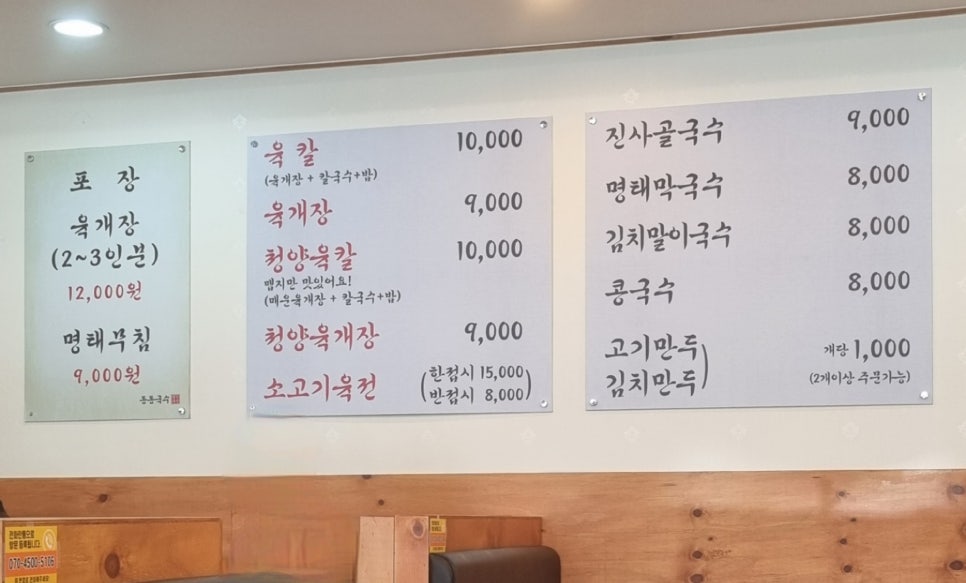 포 장
육개장
(2~3인분)
12,000원
명태무침
9,000원
동동국수
육 칼 10,000
(육개장 + 칼국수+밥)
육개장 9,000
청양육칼 10,000
맵지만 맛있어요!
(매운육개장 + 칼국수+밥)
청양육개장 9,000
소고기육전 (한접시 15,000
반접시 8,000)
진사골국수 9,000
명태막국수 8,000
김치말이국수 8,000
콩국수 8,000
고기만두
김치만두) 개당 1,000
(2개이상 주문가능)
전화한통으로
방문 등록됩니다.
070-4500-5106